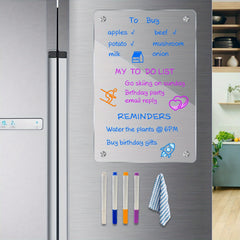 To Buy
apples ✓ beef ✓
potato ✓ mushroom
milk onion
MY TO DO LIST
Go skiing on sunday
Birthday party
email reply
REMINDERS
Water the plants @ 6PM
Buy birthday gifts